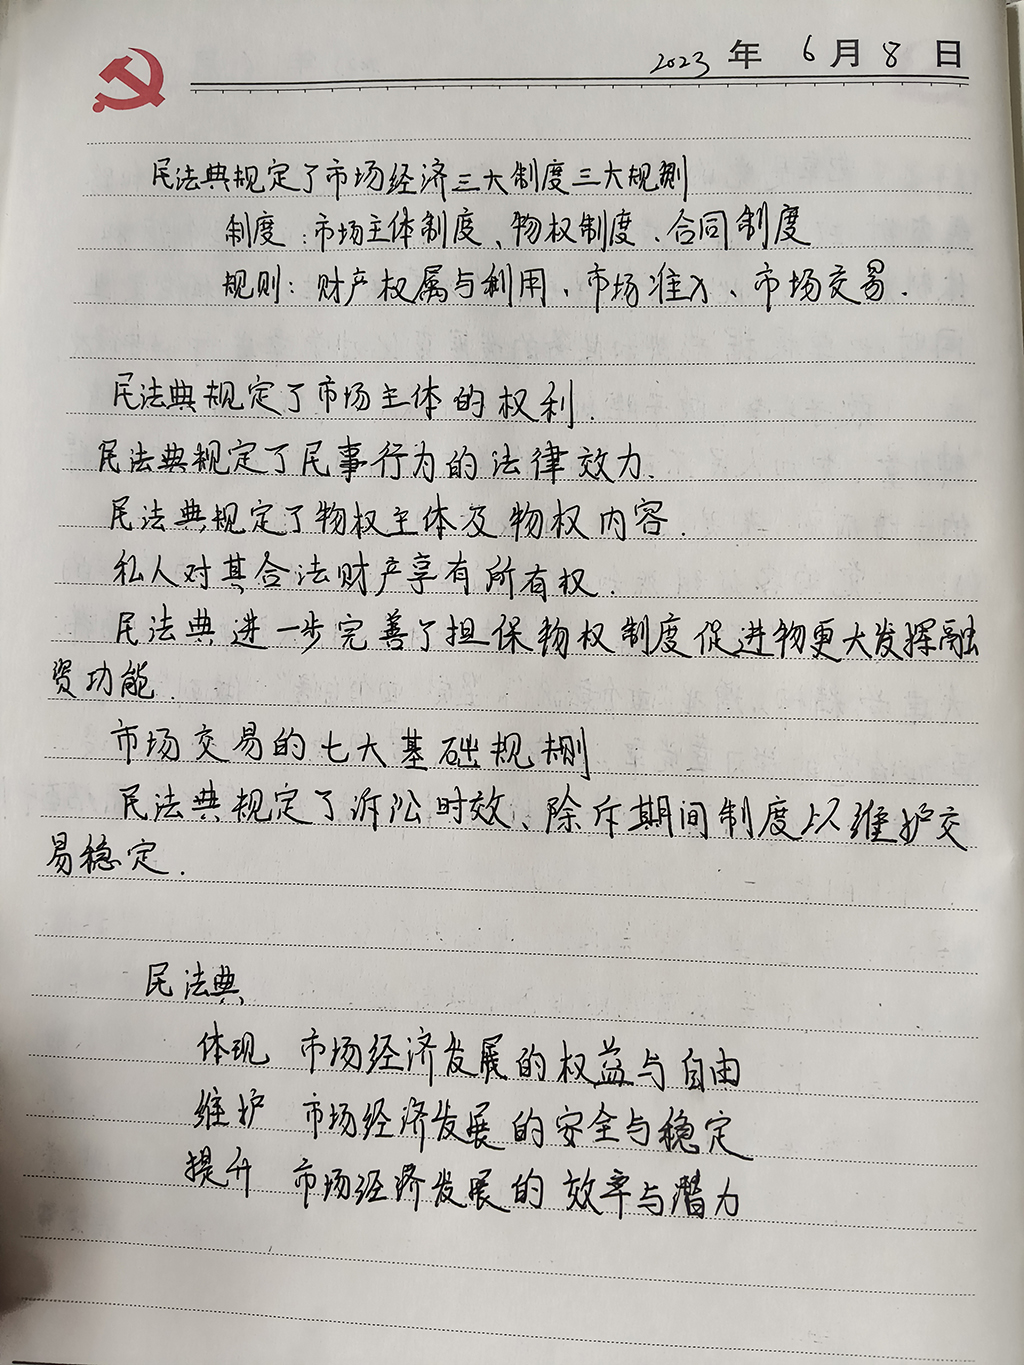 2023年6月8日
民法典规定了市场经济三大制度三大规则
制度:市场主体制度、物权制度、合同制度
规则:财产权属与利用、市场准入、市场交易.
民法典规定了市场主体的权利.
民法典规定了民事行为的法律效力.
民法典规定了物权主体及物权内容.
私人对其合法财产享有所有权.
民法典进一步完善了担保物权制度促进物更大发挥融
资功能.
市场交易的七大基础规则
民法典规定了诉讼时效、除斥期间制度以维护交
易稳定.
民法典
体现 市场经济发展的权益与自由
维护 市场经济发展的安全与稳定
提升 市场经济发展的效率与潜力